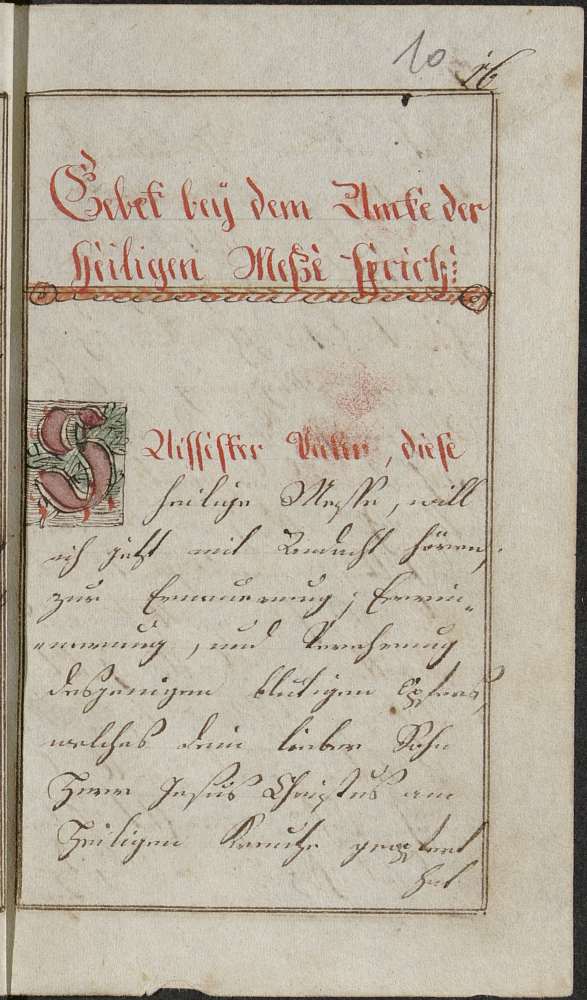 10 16
Gebet beÿ dem Amte der
Heiligen Meße sprich:
Süssister Vater, diese
heilige Messe, will
ich jetzt mit Andacht hören,
zur Ermannerung, Errin-
nerung, und Verehrung
desjenigen blutigen Opfers,
welches dein lieber Sohn
Herr Jesus Christus am
Heiligen Kreutze geopfert
hat